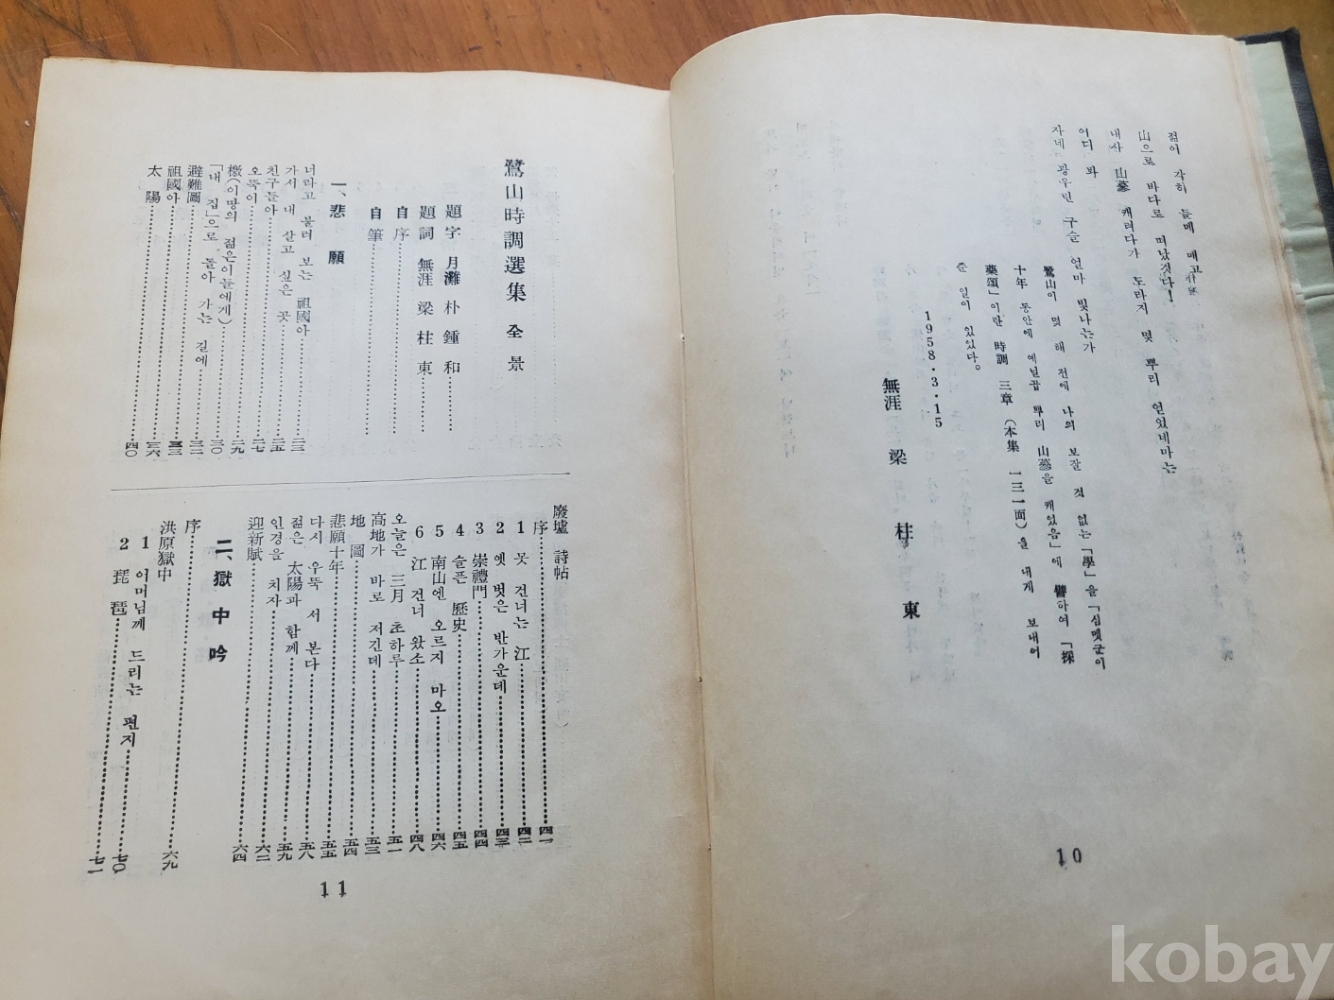 젊이 각히 들메 매고
山으로 바다로 떠났겠다!
내사 山蔘 캐러다가 도라지 몇 뿌리 얻었네마는
어디 봐
자네 광우린 구슬 얼마 빛나는가
鷺山이 몇 해 전에 나의 보잘 것 없는「學」을「심멧군이
十年 동안에 예닐곱 뿌리 山蔘을 캐었음」에 譬하여 「採
蔘頌」이란 時調 三章 (本集 一三一面)을 내게 보내어
준 일이 있었다.
1958·3·15
無涯 梁柱東
10
鷺山時調選集 全景
題字 月灘 朴鍾和
題詞 無涯 梁柱東
自序
自筆
一、悲願
너라고 불러 보는 祖國아 二三
가서 내 살고 싶은 곳 二五
친구들아 二七
오뚝이 二九
檄(이땅의 젊은이들에게) 三〇
「내 집」으로 돌아 가는 길에 三二
避難圖 三三
祖國아 三六
太陽 四〇
廢墟 詩帖
序 四一
1 못 건너는 江 四二
2 옛 벗은 반가운데 四三
3 崇禮門 四四
4 슬픈 歷史 四五
5 南山엔 오르지 마오 四六
6 江 건너 왔소 四八
오늘은 三月 초하루 五一
高地가 바로 저긴데 五三
地圖 五四
悲願十年 五五
다시 우뚝 서 본다 五八
젊은 太陽과 함께 五九
인경을 치자 六二
迎新賦 六四
二、獄中吟
序 六九
洪原獄中
1 어머님께 드리는 편지 七〇
2 琵琶 七一
11
kobay